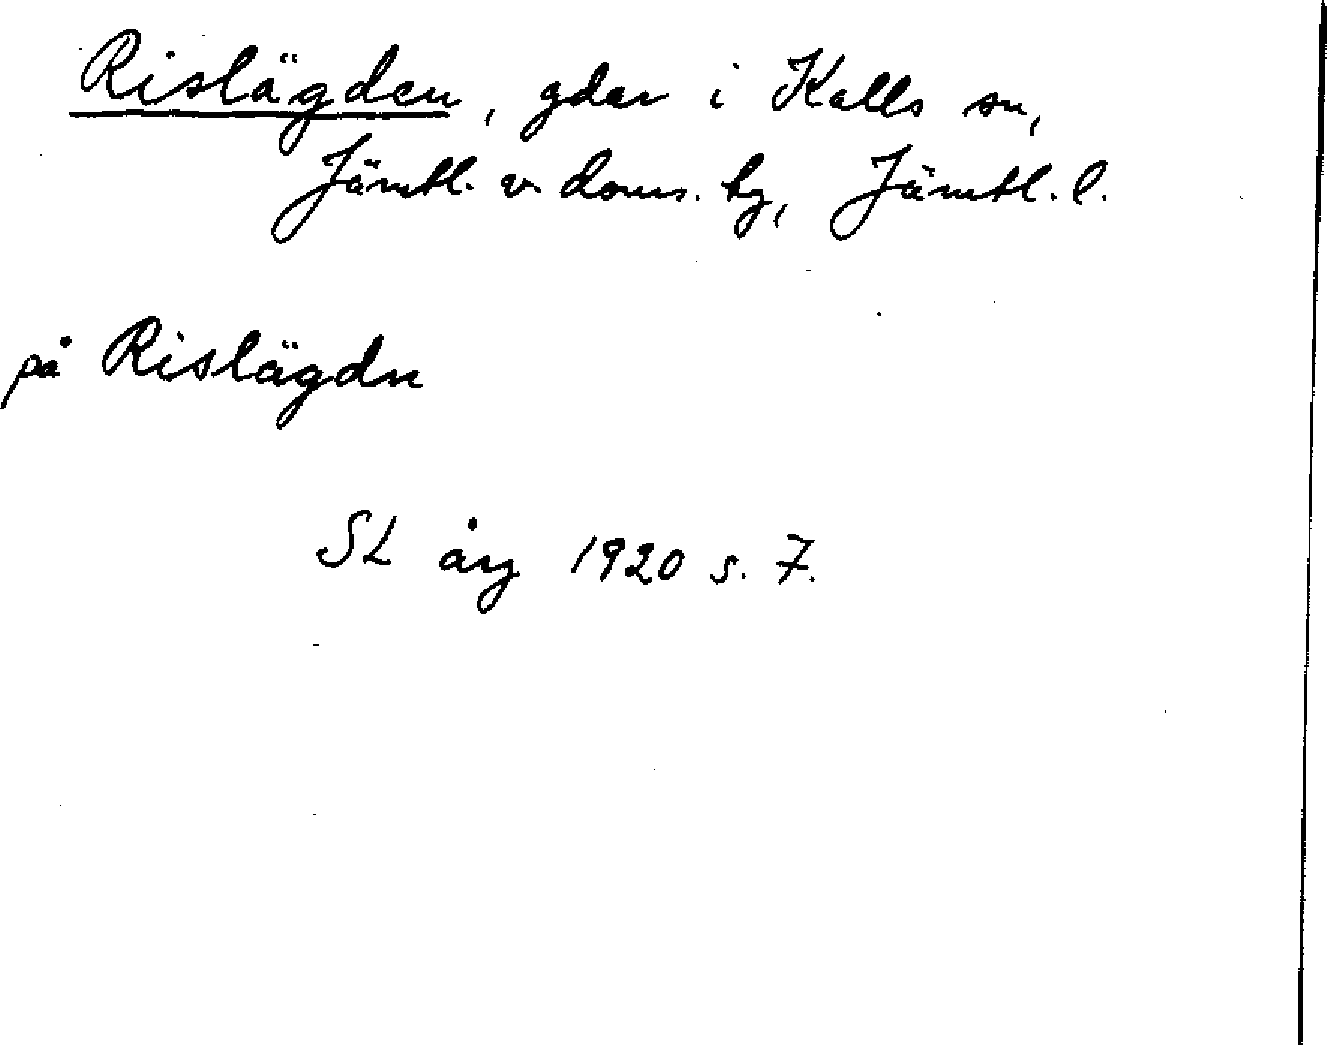 Rislägden, gdar i Kalls sn,
Jämtl. v. doms. tg, Jämtl. l.
på Rislägdn
SL årg 1920 s. 7.